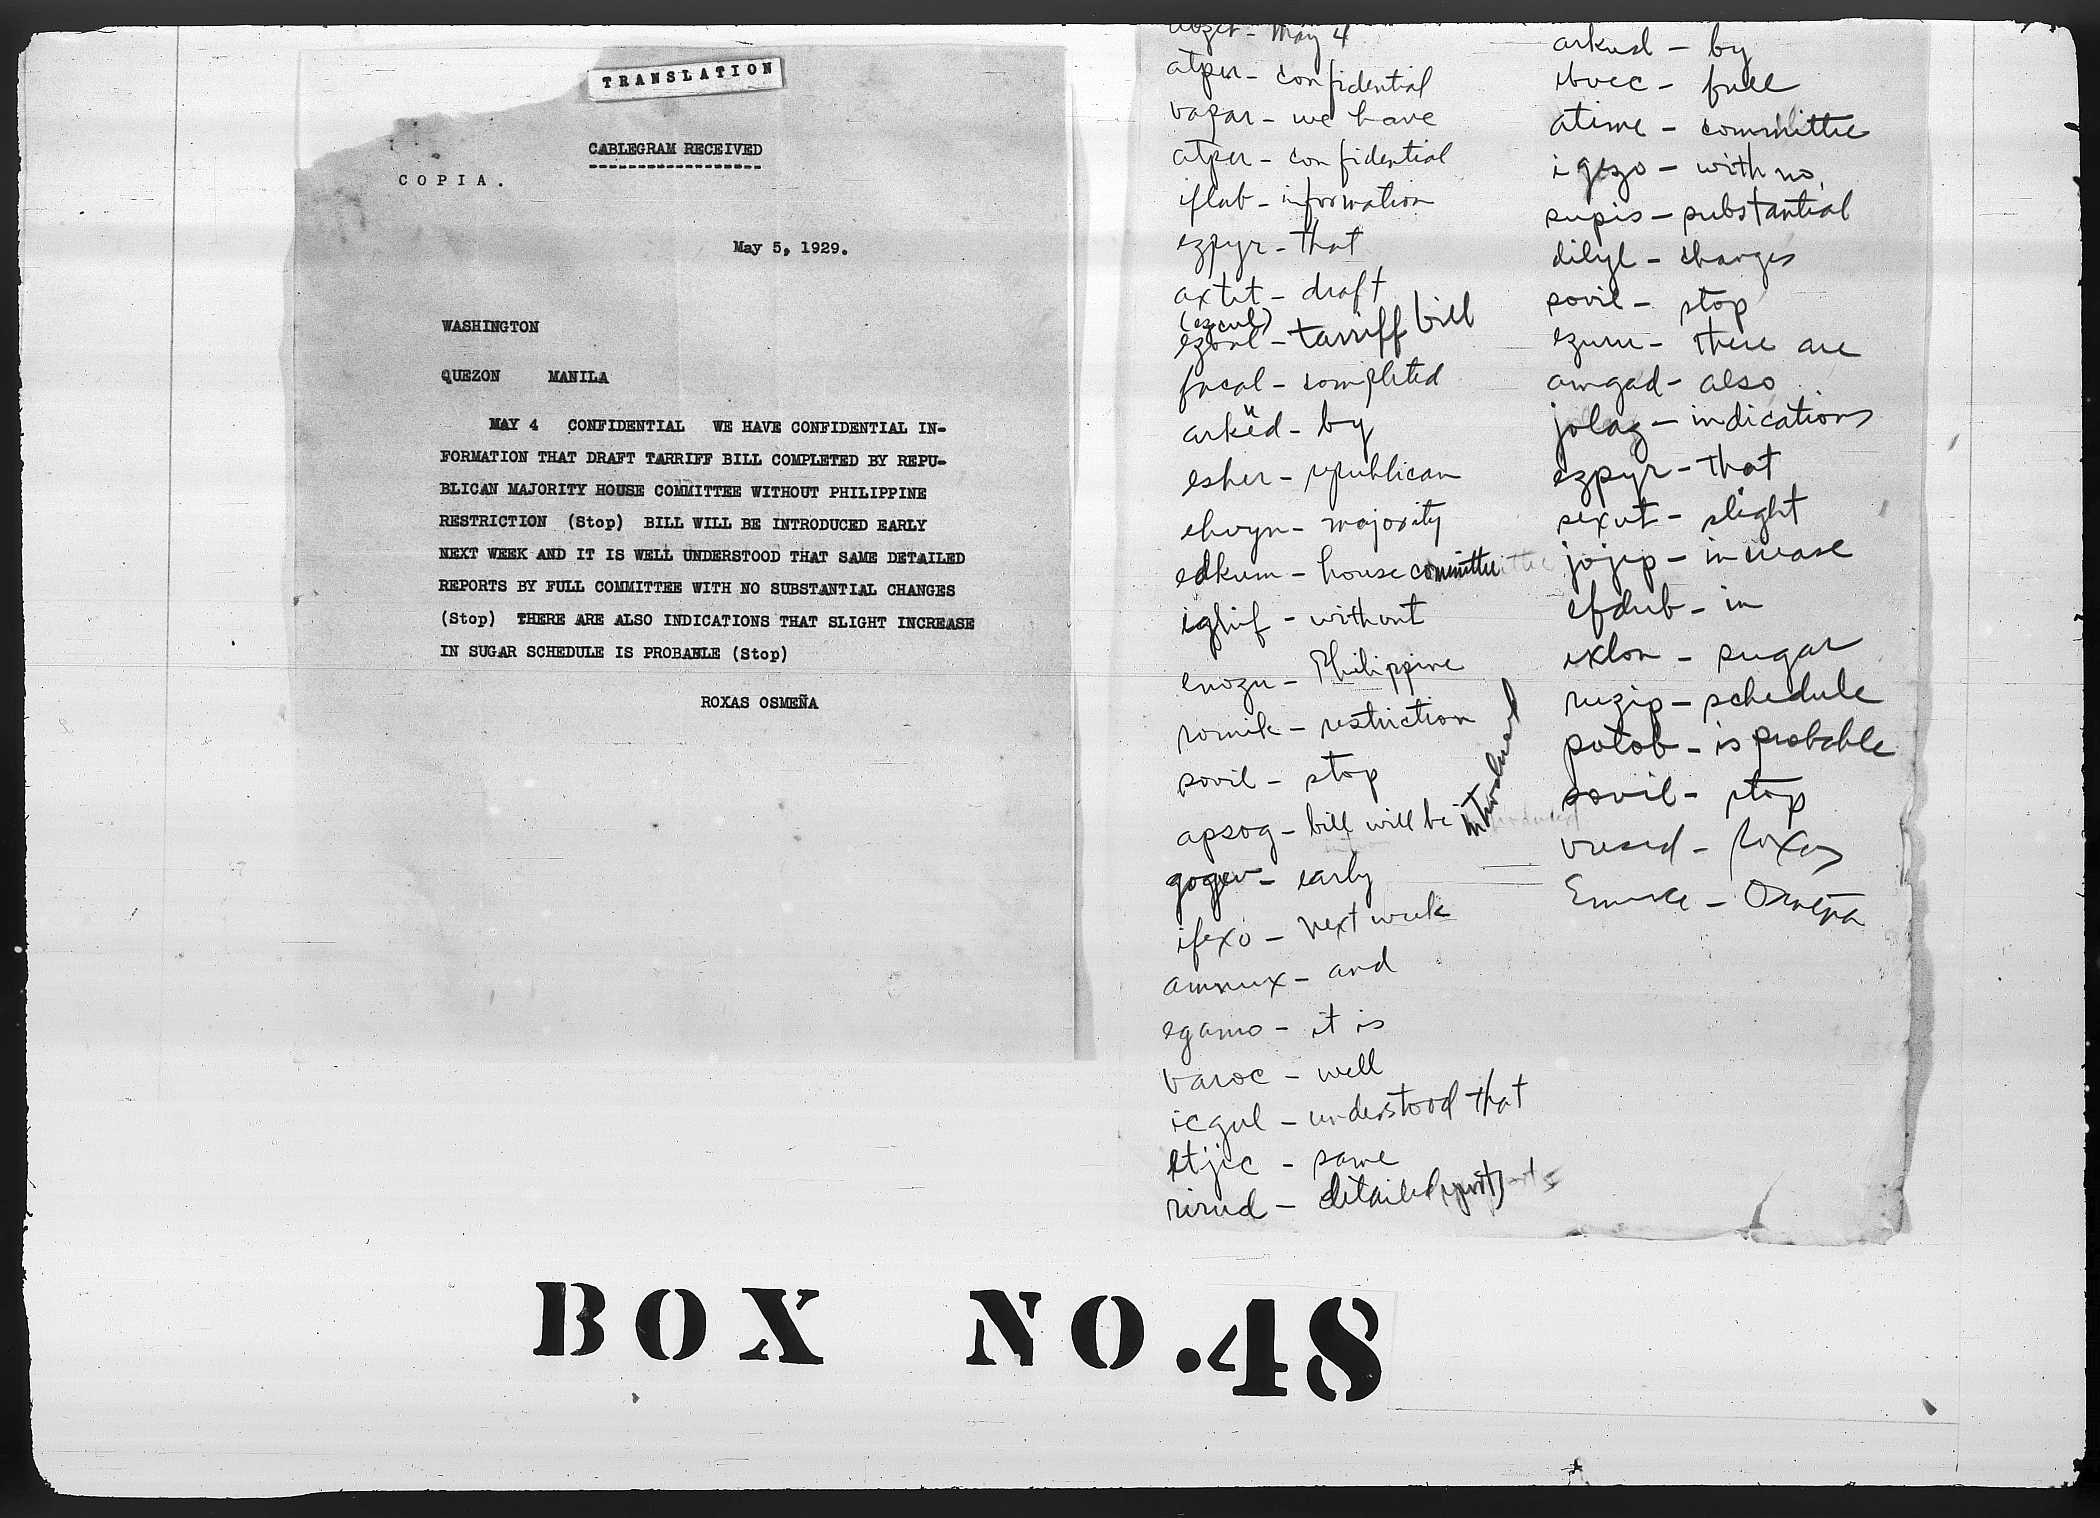 TRANSLATION
CABLEGRAM RECEIVED
COPIA.
May 5, 1929.
WASHINGTON
QUEZON MANILA
MAY 4 CONFIDENTIAL WE HAVE CONFIDENTIAL IN-
FORMATION THAT DRAFT TARRIFF BILL COMPLETED BY REPU-
BLICAN MAJORITY HOUSE COMMITTEE WITHOUT PHILIPPINE
RESTRICTION (Stop) BILL WILL BE INTRODUCED EARLY
NEXT WEEK AND IT IS WELL UNDERSTOOD THAT SAME DETAILED
REPORTS BY FULL COMMITTEE WITH NO SUBSTANTIAL CHANGES
(Stop) THERE ARE ALSO INDICATIONS THAT SLIGHT INCREASE
IN SUGAR SCHEDULE IS PROBABLE (Stop)
ROXAS OSMEÑA
May 4
atper - confidential
vafar - we have
atper - confidential
iflab - information
ezpyr - that
axtet - draft
(ezcul)
tarriff bill
facal - completed
arked - by
esher - republican
ehvyn - majority
edkum - house committee
ighif - without
enozu - Philippine
romik - restriction
sovil - stop
apsog - bill will be introduced
early
ifexo - next week
amnux - and
egamo - it is
varoc - well
icgul - understood that
etjic - same
rirud - detailed reports
arkud - by
full
atime - committee
igezo - with no
supis - substantial
dilyl - changes
sovil - stop
there are
amgad - also
jolag - indications
ezpyr - that
sexut - slight
jojep - increase
efdub - in
exlon - sugar
ruzip - schedule
potob - is probable
sovil - stop
Roxas
Osmeña
BOX NO.48